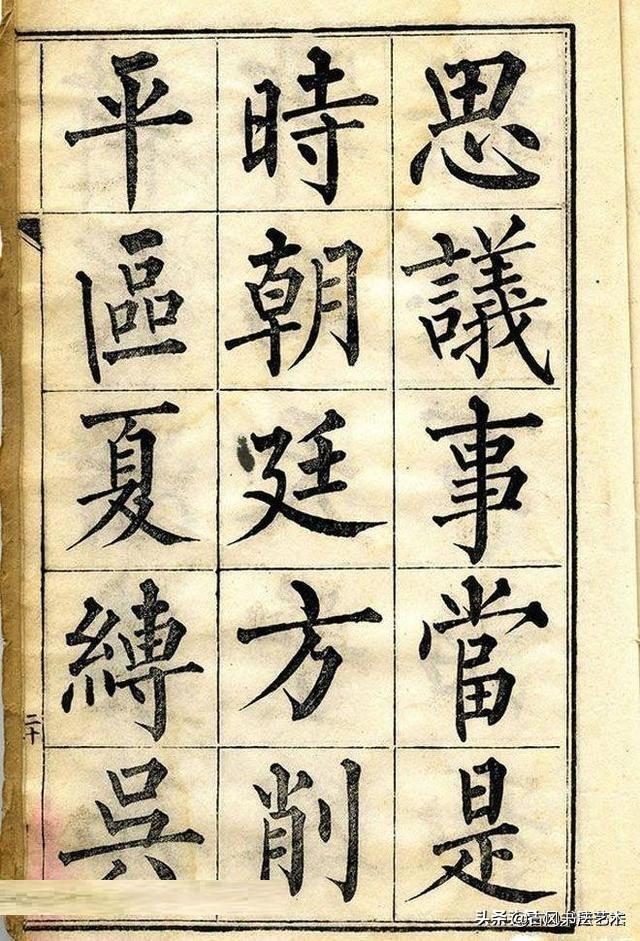 思議事當是
時朝廷方削
平區夏縛吳
二十
头条@古风书法艺术